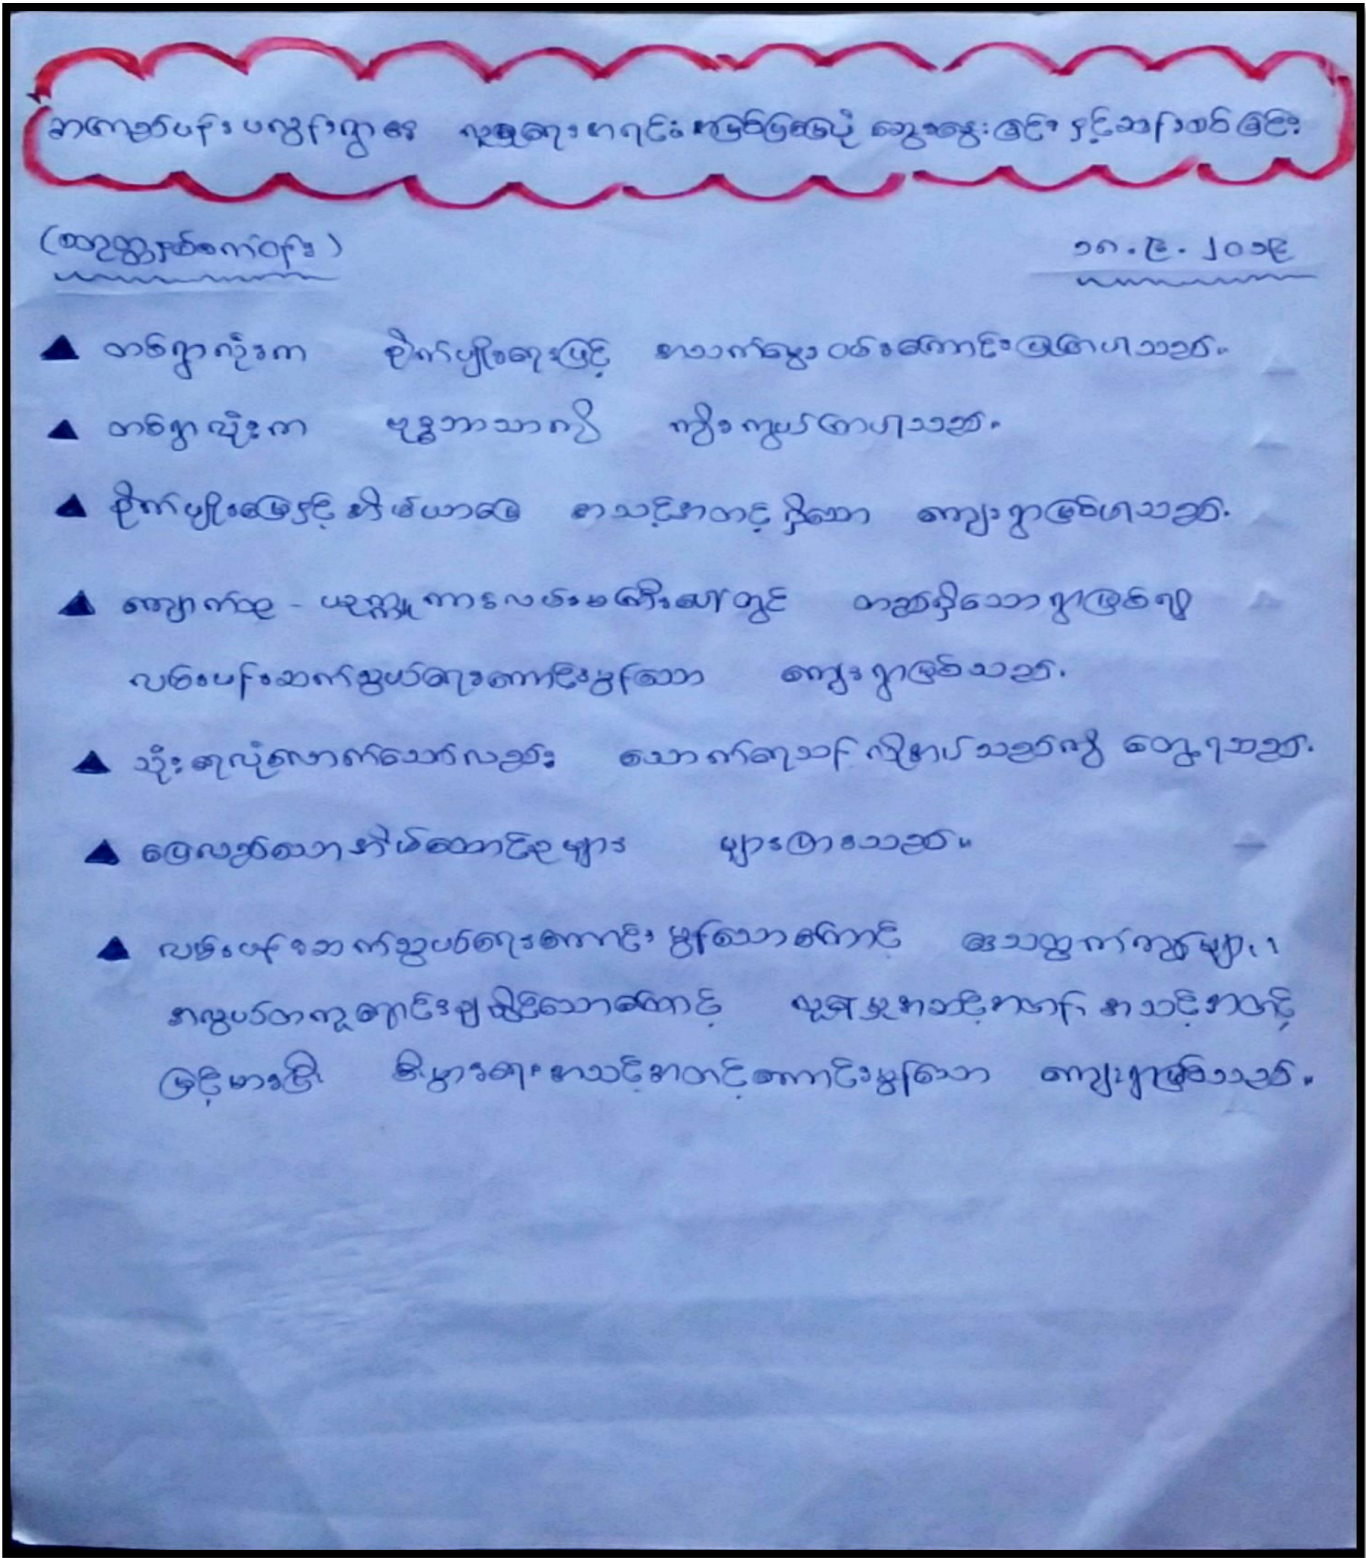 အကျည်ပန်းပလွန်ရွာ၏ လူမှုရေးအရင်းအမြစ်ပြမြေပုံ ဆွေးနွေးခြင်းနှင့်ဆန်းစစ်ခြင်း
(စတုတ္ထမိုင်ဝန်း)
၁၈.၉.၂၀၁၉
▲ တစ်ရွာလုံးက စိုက်ပျိုးရေးဖြင့် အသက်မွေးဝမ်းကျောင်းပြုကြပါသည်။
▲ တစ်ရွာလုံးက ဗုဒ္ဓဘာသာကို ကိုးကွယ်ကြပါသည်။
▲ စိုက်ပျိုးမြေနှင့်အိမ်ယာမြေ အသင့်အတင့်ရှိသော ကျေးရွာဖြစ်ပါသည်။
▲ ကျောက်ထု - ပခုက္ကူကားလမ်းမကြီးပေါ်တွင် တည်ရှိသောရွာဖြစ်၍
လမ်းပန်းဆက်သွယ်ရေးကောင်းမွန်သော ကျေးရွာဖြစ်သည်။
▲ သုံးရေလုံလောက်သော်လည်း သောက်ရေသန့်လိုအပ်သည်ကို တွေ့ရသည်။
▲ ပြေလည်သောအိမ်ထောင်စုများ များပြားသည်။
▲ လမ်းပန်းဆက်သွယ်ရေးကောင်းမွန်သောကြောင့် ဒေသထွက်ကုန်များ
အလွယ်တကူရောင်းချနိုင်သောကြောင့် လူနေမှုအဆင့်အတန်း အသင့်အတင့်
မြင့်မားပြီး စီးပွားရေးအသင့်အတင့်ကောင်းမွန်သော ကျေးရွာဖြစ်သည်။